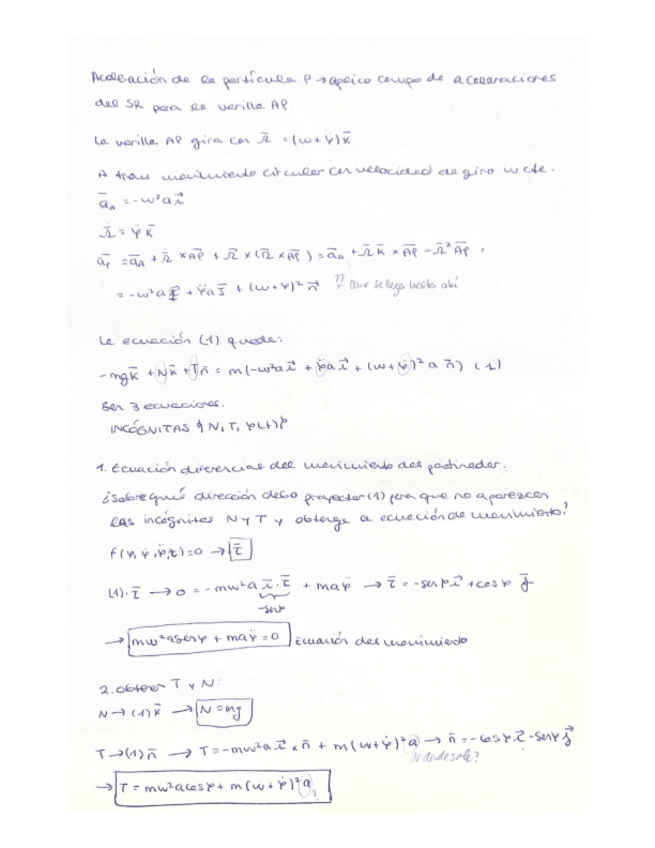 Aceleración de la partícula P → aplico campo de aceleraciones
del SR para la varilla AP.
La varilla AP gira con Ω̄ = (ω+φ̇)k̄
A trae movimiento circular con velocidad de giro ω cte.
ā_A = -ω²a i⃗
Ω̄̇ = φ̈ k̄
ā_P = ā_A + Ω̄̇ × AP̄ + Ω̄ × (Ω̄ × AP̄) = ā_A + Ω̇ k̄ × AP̄ - Ω² AP̄
= -ω²a i⃗ + φ̈a τ̄ + (ω+φ̇)² n⃗ ¿? Cómo se llega hasta ahí
La ecuación (1) queda:
-mg k̄ + N k̄ + T n̄ = m(-ω²a i⃗ + φ̈a τ⃗ + (ω+φ̇)² a n̄) (1)
Son 3 ecuaciones.
INCÓGNITAS N, T, φ(t)
1. Ecuación diferencial del movimiento del patinador.
¿Sobre qué dirección debo proyectar (1) para que no aparezcan
las incógnitas N y T y obtenga la ecuación de movimiento?
f(φ, φ̇, φ̈, t) = 0 → τ̄
(1)·τ̄ → 0 = -mω²a i⃗·τ̄ + maφ̈ → τ̄ = -senφ i⃗ + cosφ j⃗
-senφ
→ mω²a senφ + maφ̈ = 0 Ecuación del movimiento
2. Obtener T y N:
N → (1) k̄ → N = mg
T → (1) n̄ → T = -mω²a i⃗ × n̄ + m(ω+φ̇)² a → n̄ = -cosφ i⃗ - senφ j⃗
de dónde sale?
→ T = mω²a cosφ + m(ω+φ̇)² a ?